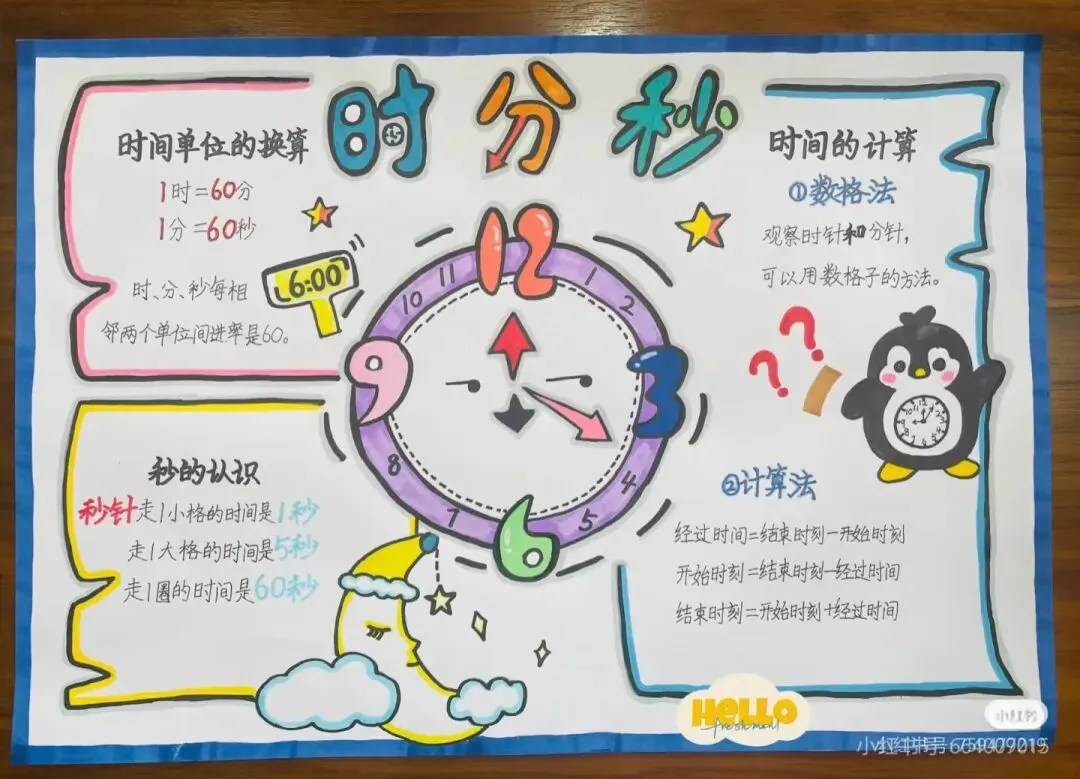 时分秒
时间单位的换算
1时=60分
1分=60秒
时、分、秒每相
邻两个单位间进率是60。
6:00
12
1
2
3
4
5
6
7
8
9
10
11
秒的认识
秒针走1小格的时间是1秒
走1大格的时间是5秒
走1圈的时间是60秒
时间的计算
①数格法
观察时针和分针，
可以用数格子的方法。
??
②计算法
经过时间=结束时刻-开始时刻
开始时刻=结束时刻-经过时间
结束时刻=开始时刻+经过时间
HELLO
小红书
小红书号